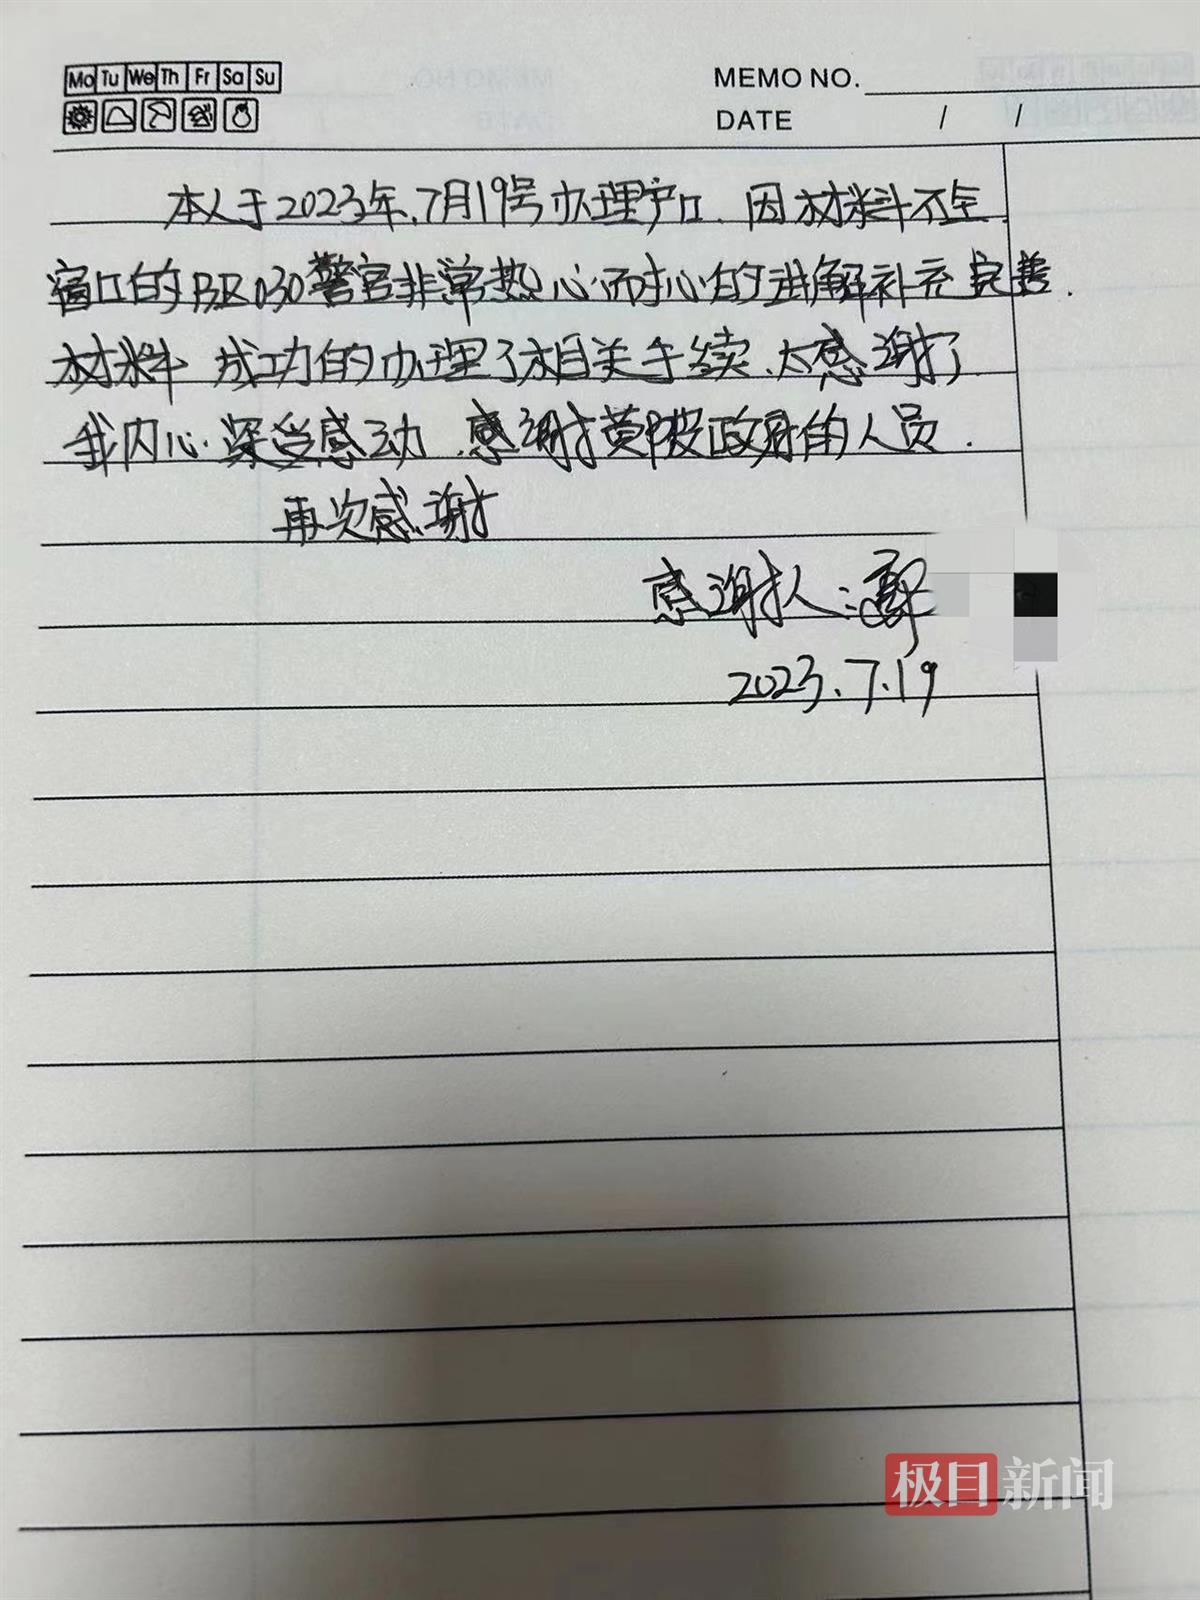 Mo Tu We Th Fr Sa Su
MEMO NO.
DATE / /
本人于2023年.7月19号办理户口.因材料不全
窗口的BZ030警官非常热心.耐心的讲解补充完善.
材料 成功的办理了相关手续.太感谢了
我内心深受感动.感谢黄陂政府的人员.
再次感谢
感谢人:郭
2023.7.19
极目新闻